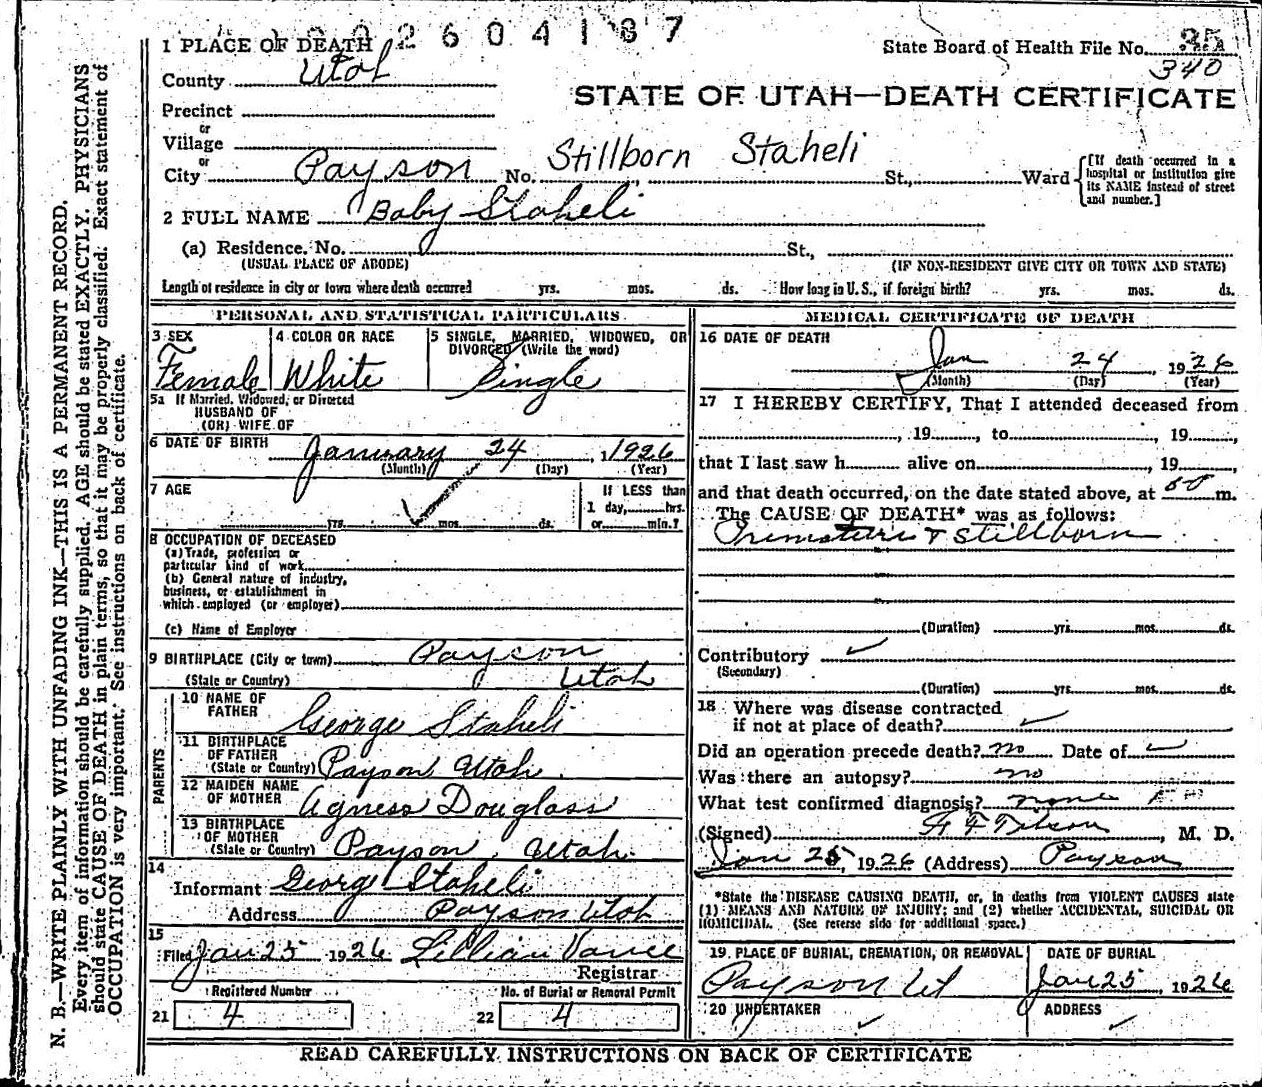 2604187
1 PLACE OF DEATH
State Board of Health File No. 35
340
County Utah
STATE OF UTAH—DEATH CERTIFICATE
Precinct
or
Village
or
City Payson No. Stillborn Staheli St., Ward
[If death occurred in a hospital or institution give its NAME instead of street and number.]
2 FULL NAME Baby Staheli
(a) Residence. No. St.,
(USUAL PLACE OF ABODE) (IF NON-RESIDENT GIVE CITY OR TOWN AND STATE)
Length of residence in city or town where death occurred yrs. mos. ds. How long in U. S., if foreign birth? yrs. mos. ds.
PERSONAL AND STATISTICAL PARTICULARS
3 SEX
Female
4 COLOR OR RACE
White
5 SINGLE, MARRIED, WIDOWED, OR
DIVORCED (Write the word)
Single
5a If Married, Widowed, or Divorced
HUSBAND OF
(OR) WIFE OF
6 DATE OF BIRTH January 24, 1926
(Month) (Day) (Year)
7 AGE
yrs. mos. ds.
If LESS than
1 day, hrs.
or min.?
8 OCCUPATION OF DECEASED
(a) Trade, profession or
particular kind of work
(b) General nature of industry,
business, or establishment in
which employed (or employer)
(c) Name of Employer
9 BIRTHPLACE (City or town) Payson
(State or Country) Utah
PARENTS
10 NAME OF
FATHER George Staheli
11 BIRTHPLACE
OF FATHER
(State or Country) Payson Utah.
12 MAIDEN NAME
OF MOTHER Agness Douglass
13 BIRTHPLACE
OF MOTHER
(State or Country) Payson, Utah.
14
Informant George Staheli
Address Payson Utah
15
Filed Jan 25 1926 Lillian Vance
Registrar
Registered Number
21 4
No. of Burial or Removal Permit
22 4
MEDICAL CERTIFICATE OF DEATH
16 DATE OF DEATH
Jan 24, 1926
(Month) (Day) (Year)
17 I HEREBY CERTIFY, That I attended deceased from
, 19 , to , 19 ,
that I last saw h alive on , 19 ,
and that death occurred, on the date stated above, at m.
The CAUSE OF DEATH* was as follows:
Premature & Stillborn
(Duration) yrs. mos. ds.
Contributory
(Secondary)
(Duration) yrs. mos. ds.
18 Where was disease contracted
if not at place of death?
Did an operation precede death? no Date of
Was there an autopsy? no
What test confirmed diagnosis? none
(Signed) , M. D.
Jan 25, 1926 (Address) Payson
*State the DISEASE CAUSING DEATH, or, in deaths from VIOLENT CAUSES state
(1) MEANS AND NATURE OF INJURY; and (2) whether ACCIDENTAL, SUICIDAL OR
HOMICIDAL. (See reverse side for additional space.)
19 PLACE OF BURIAL, CREMATION, OR REMOVAL
Payson Ut
DATE OF BURIAL
Jan 25, 1926
20 UNDERTAKER
ADDRESS
READ CAREFULLY INSTRUCTIONS ON BACK OF CERTIFICATE
N. B.—WRITE PLAINLY WITH UNFADING INK—THIS IS A PERMANENT RECORD.
Every item of information should be carefully supplied. AGE should be stated EXACTLY. PHYSICIANS
should state CAUSE OF DEATH in plain terms, so that it may be properly classified. Exact statement of
OCCUPATION is very important. See instructions on back of certificate.